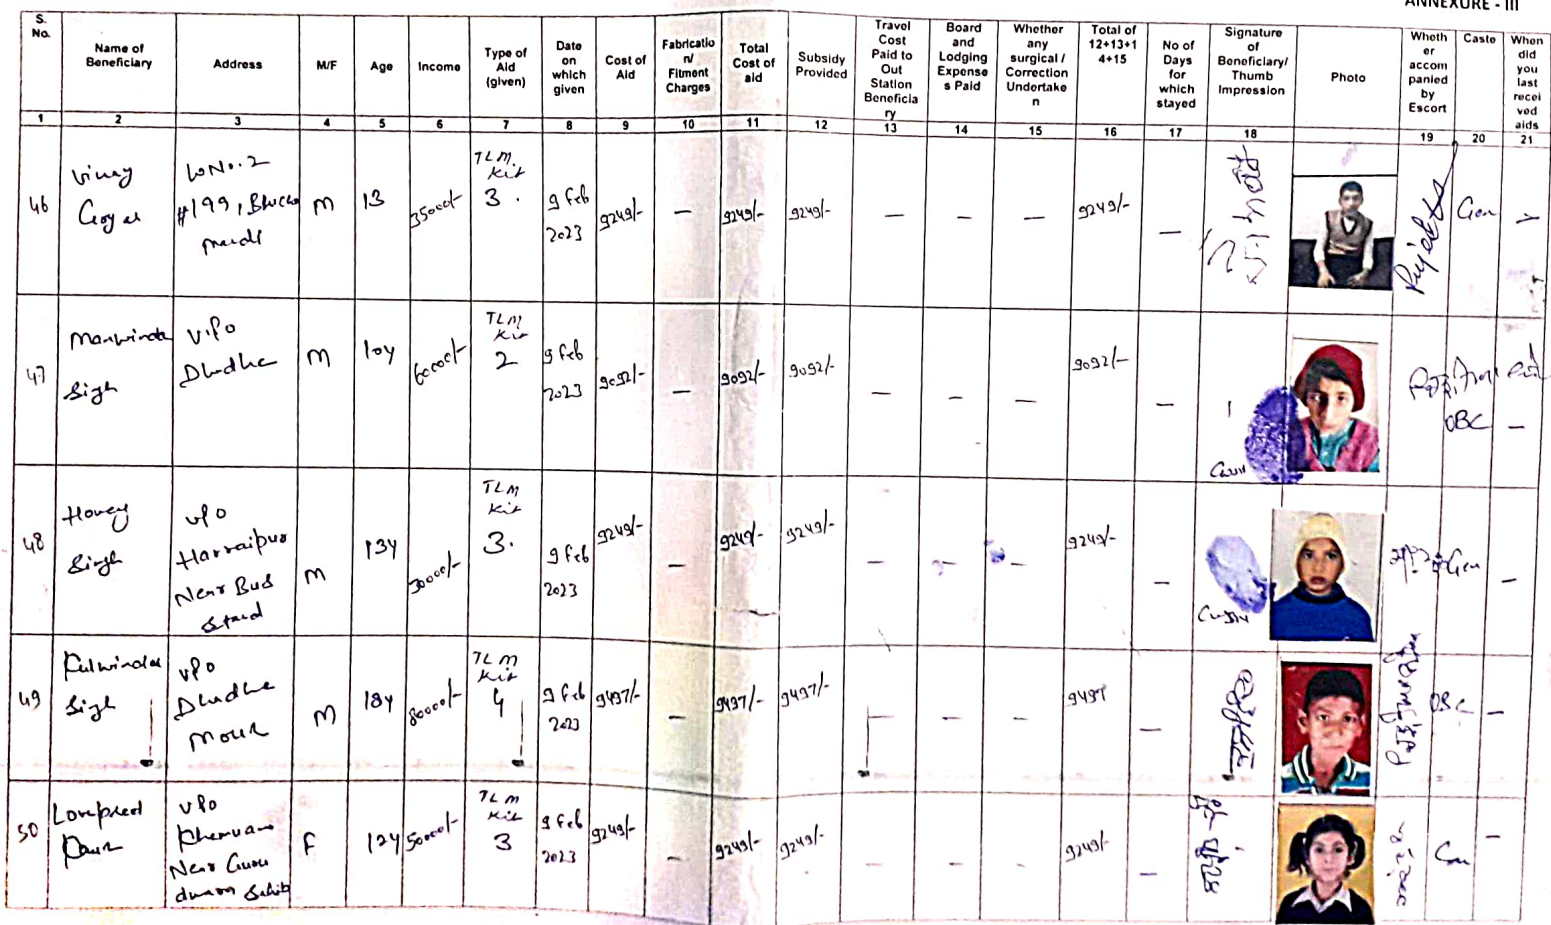 ANNEXURE - III
S. No.
Name of Beneficiary
Address
M/F
Age
Income
Type of Aid (given)
Date on which given
Cost of Aid
Fabricatio n/ Fitment Charges
Total Cost of aid
Subsidy Provided
Travel Cost Paid to Out Station Beneficia ry
Board and Lodging Expense s Paid
Whether any surgical / Correction Undertake n
Total of 12+13+1 4+15
No of Days for which stayed
Signature of Beneficiary/ Thumb Impression
Photo
Wheth er accom panied by Escort
Caste
When did you last recei ved aids
1 2 3 4 5 6 7 8 9 10 11 12 13 14 15 16 17 18 19 20 21
46 Vinay Goyal W No. 2 #199, M 13 35000/- TLM Kit 3. 9 Feb 2023 9249/- — 9249/- 9249/- — — — 9249/- — Gen
47 Manwinder Singh VPO Dhadhe M 10y 60000/- TLM Kit 2 9 Feb 2023 9092/- — 9092/- 9092/- — — — 9092/- — OBC —
48 Honey Singh VPO Harraipur Near Bus Stand M 13y 30000/- TLM Kit 3. 9 Feb 2023 9249/- — 9249/- 9249/- — — — 9249/- — Gen —
49 Kulwinder Singh VPO Dhadhe M 18y 80000/- TLM Kit 4 9 Feb 2023 9497/- — 9497/- 9497/- — — — 9497 — OBC —
50 Lovepreet Kaur VPO Khemuana Near Guru dwara Sahib F 12y 50000/- TLM Kit 3 9 Feb 2023 9249/- — 9249/- 9249/- — — — 9249/- — Gen —